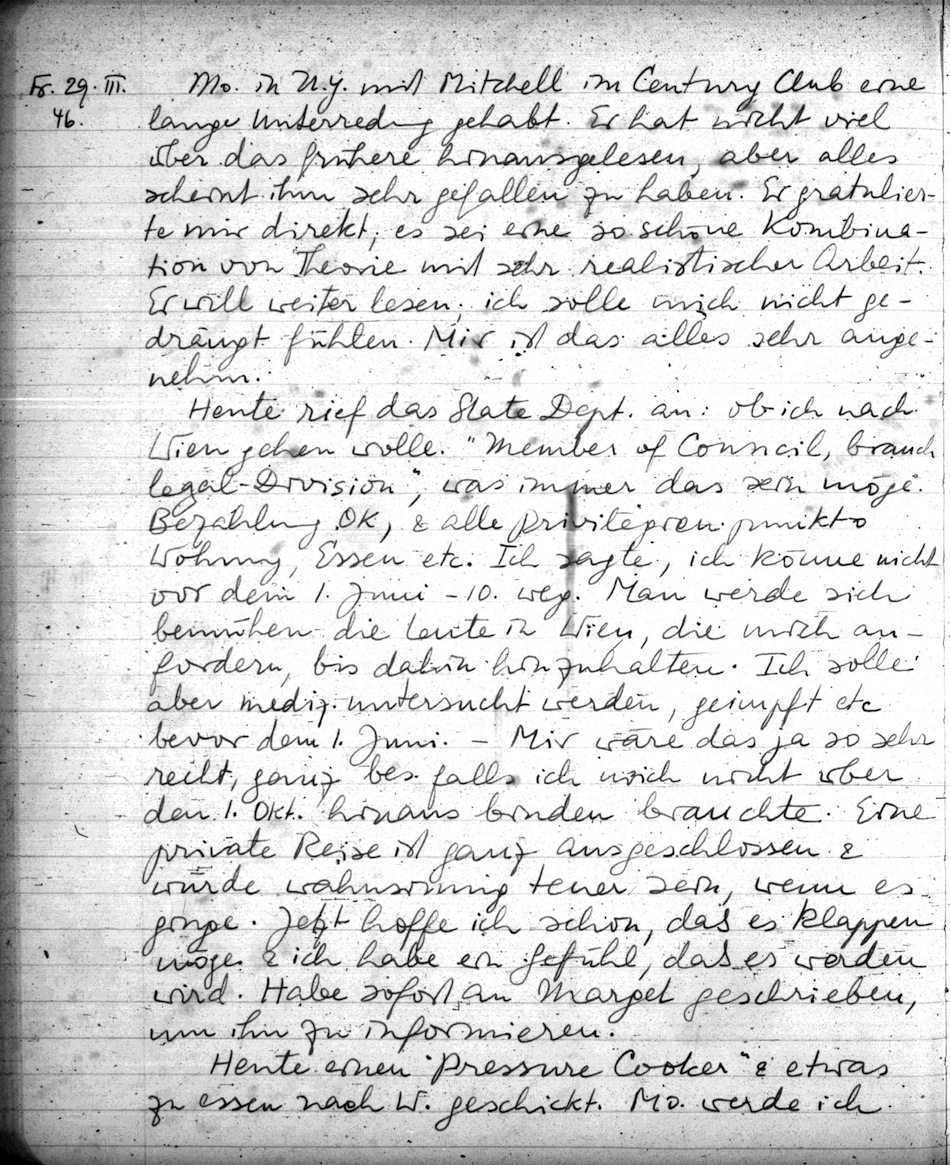 Fr. 29. III. Mo. in N.Y. mit Mitchell im Century Club eine
46. lange Unterredung gehabt. Er hat nicht viel
über das frühere hinausgelesen, aber alles
scheint ihm sehr gefallen zu haben. Er gratulier-
te mir direkt, es sei eine so schöne Kombina-
tion von Theorie mit sehr realistischer Arbeit.
Er will weiter lesen, ich solle mich nicht ge-
drängt fühlen. Mir ist das alles sehr ange-
nehm.
Heute rief das State Dept. an: ob ich nach
Wien gehen wolle. "Member of Council, branch
legal-Division", was immer das sein möge.
Bezahlung OK, & alle Privilegien punkto
Wohnung, Essen etc. Ich sagte, ich könne nicht
vor dem 1. Juni - 10. weg. Man werde sich
bemühen die Leute in Wien, die mich an-
fordern, bis dahin hinzuhalten. Ich solle
aber mediz. untersucht werden, geimpft etc
bevor dem 1. Juni. - Mir wäre das ja so sehr
recht, ganz bes. falls ich mich nicht über
den 1. Okt. hinaus binden brauchte. Eine
private Reise ist ganz ausgeschlossen &
würde wahnsinnig teuer sein, wenn es
ginge. Jetzt hoffe ich schon, das es klappen
möge & ich habe ein Gefühl, das es werden
wird. Habe sofort an Marget geschrieben,
um ihn zu informieren.
Heute einen "Pressure Cooker" & etwas
zu essen nach W. geschickt. Mo. werde ich